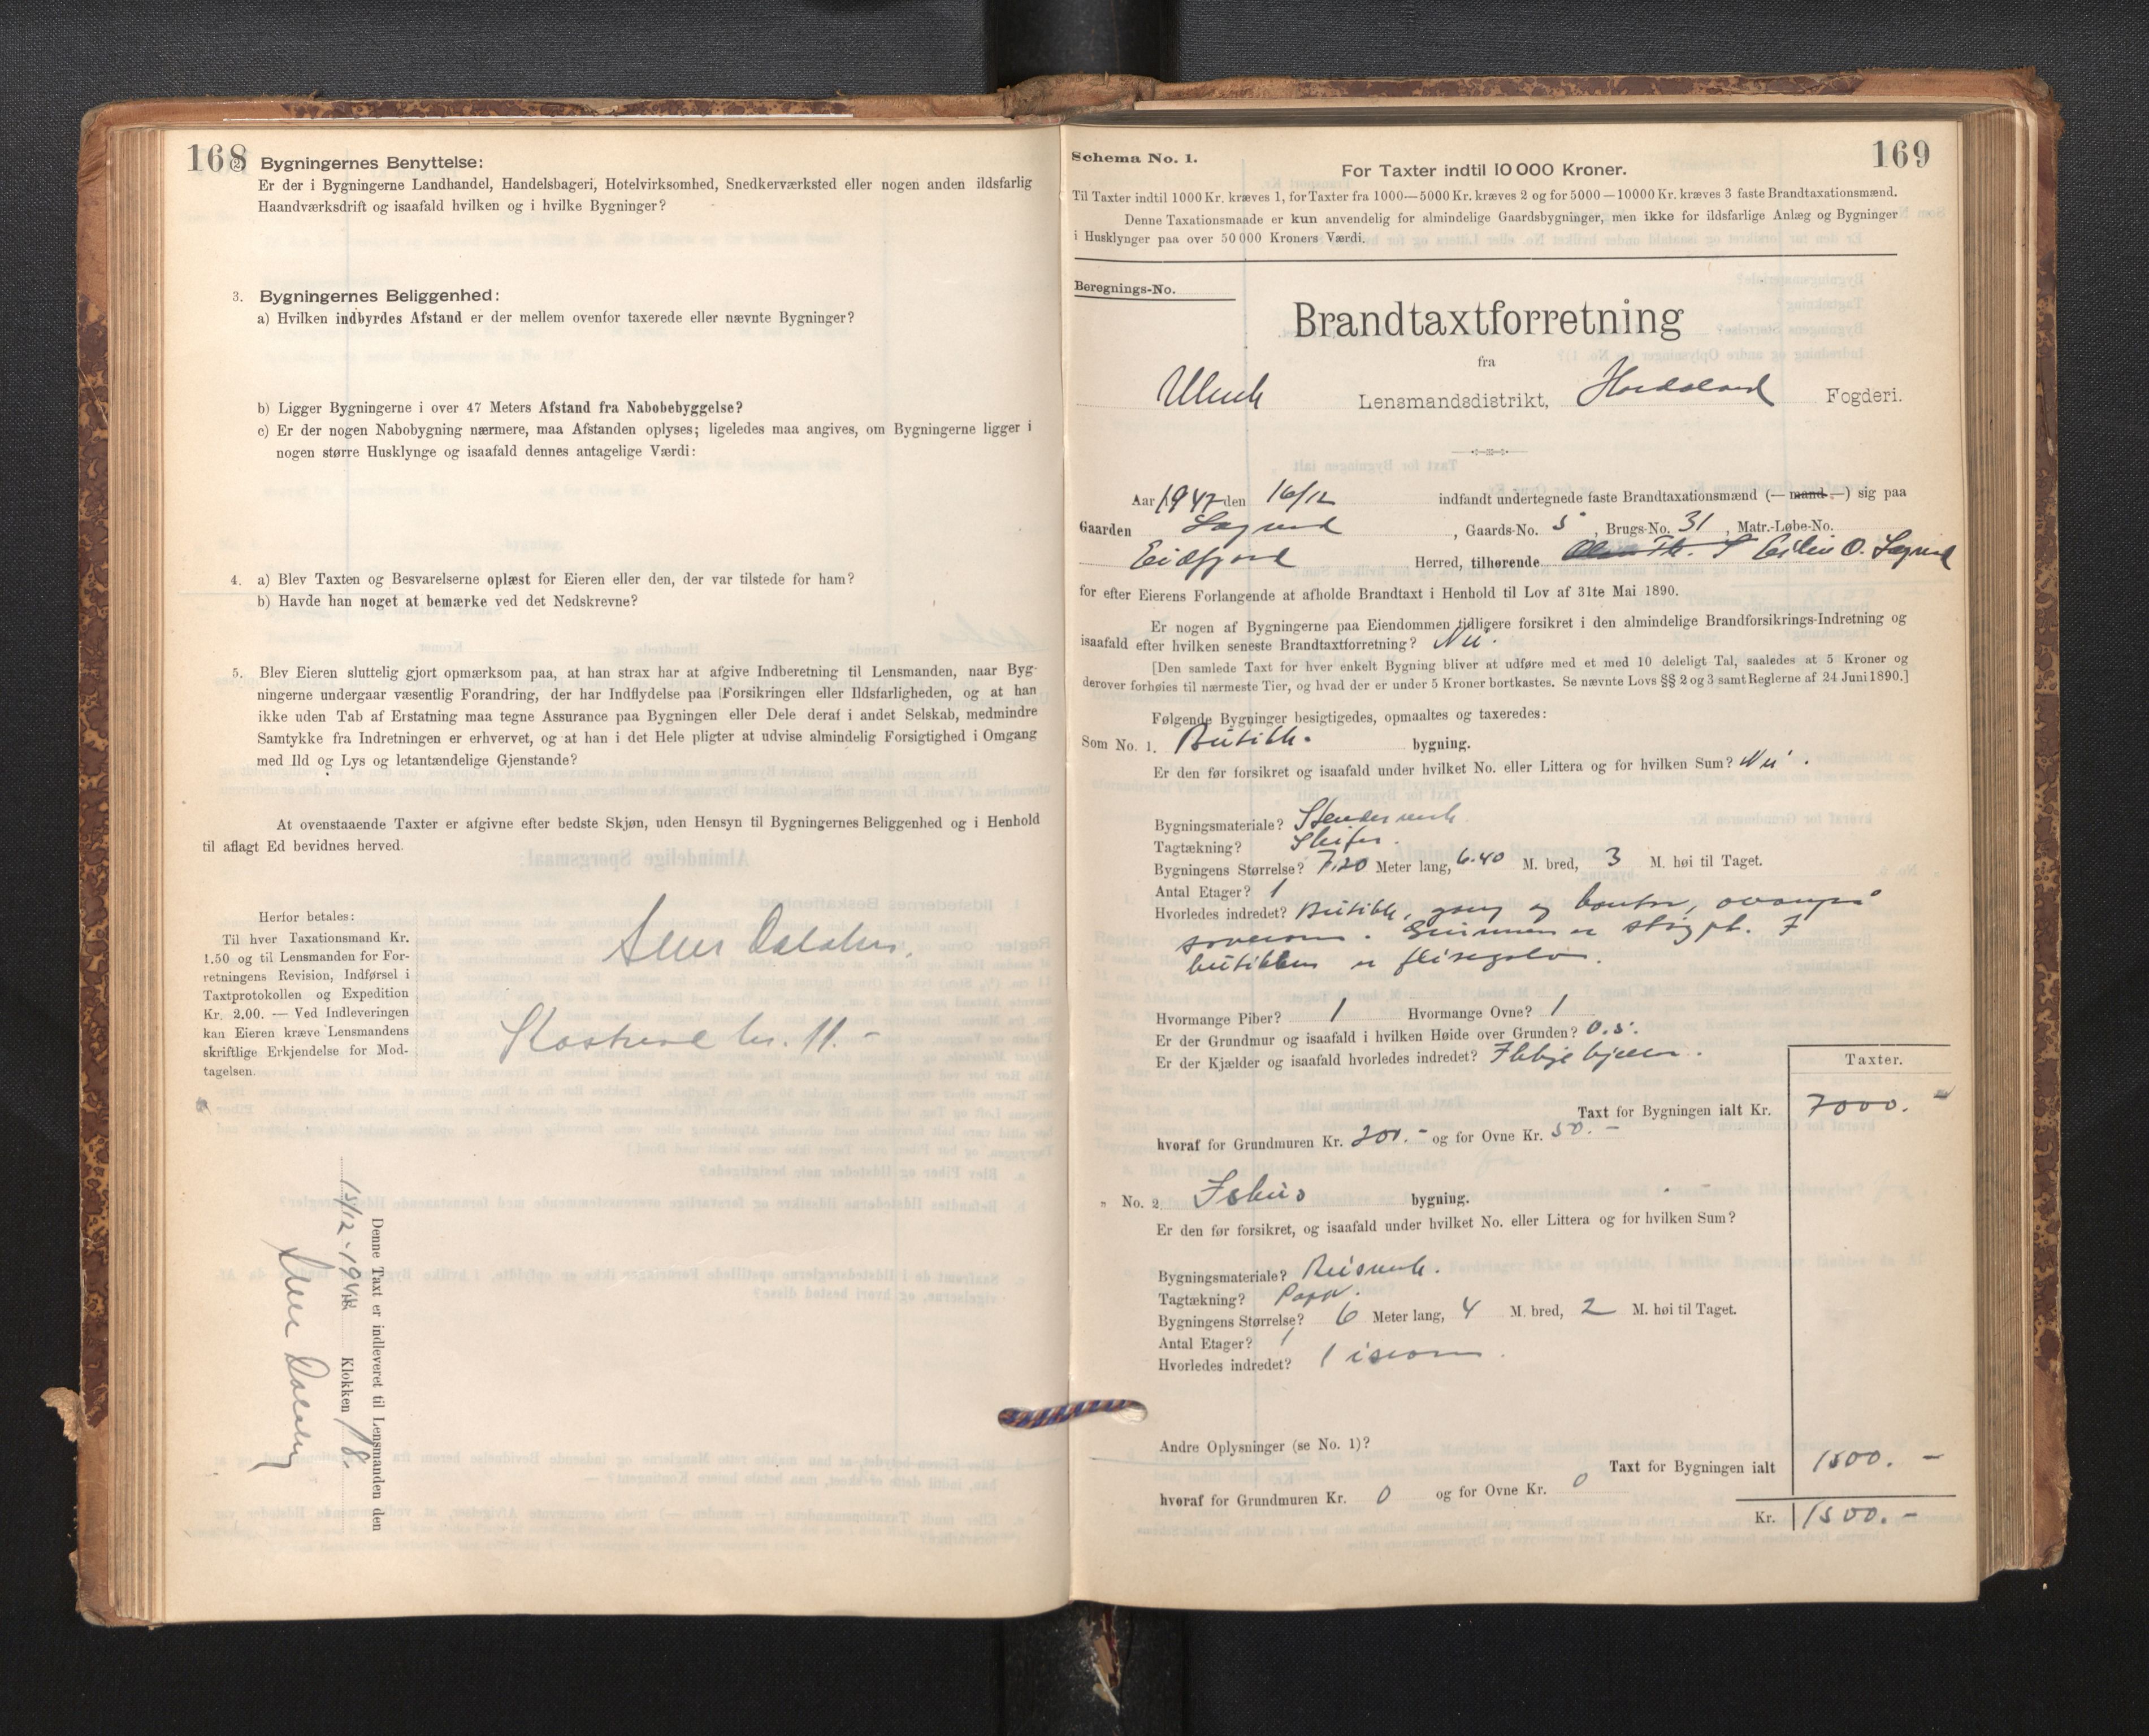 168
2. Bygningernes Benyttelse:
Er der i Bygningerne Landhandel, Handelsbageri, Hotelvirksomhed, Snedkerværksted eller nogen anden ildsfarlig
Haandværksdrift og isaafald hvilken og i hvilke Bygninger?
3. Bygningernes Beliggenhed:
a) Hvilken indbyrdes Afstand er der mellem ovenfor taxerede eller nævnte Bygninger?
b) Ligger Bygningerne i over 47 Meters Afstand fra Nabobebyggelse?
c) Er der nogen Nabobygning nærmere, maa Afstanden oplyses; ligeledes maa angives, om Bygningerne ligger i
nogen større Husklynge og isaafald dennes antagelige Værdi:
4. a) Blev Taxten og Besvarelserne oplæst for Eieren eller den, der var tilstede for ham?
b) Havde han noget at bemærke ved det Nedskrevne?
5. Blev Eieren sluttelig gjort opmærksom paa, at han strax har at afgive Indberetning til Lensmanden, naar Byg-
ningerne undergaar væsentlig Forandring, der har Indflydelse paa Forsikringen eller Ildsfarligheden, og at han
ikke uden Tab af Erstatning maa tegne Assurance paa Bygningen eller Dele deraf i andet Selskab, medmindre
Samtykke fra Indretningen er erhvervet, og at han i det Hele pligter at udvise almindelig Forsigtighed i Omgang
med Ild og Lys og letantændelige Gjenstande?
At ovenstaaende Taxter er afgivne efter bedste Skjøn, uden Hensyn til Bygningernes Beliggenhed og i Henhold
til aflagt Ed bevidnes herved.
Herfor betales:
Til hver Taxationsmand Kr.
1.50 og til Lensmanden for For-
retningens Revision, Indførsel i
Taxtprotokollen og Expedition
Kr. 2,00. — Ved Indleveringen
kan Eieren kræve Lensmandens
skriftlige Erkjendelse for Mod-
tagelsen.
kr. 11.-
Denne Taxt er indleveret til Lensmanden den
15/12-194 Klokken 18.
169
Schema No. 1.
For Taxter indtil 10 000 Kroner.
Til Taxter indtil 1000 Kr. kræves 1, for Taxter fra 1000—5000 Kr. kræves 2 og for 5000—10000 Kr. kræves 3 faste Brandtaxationsmænd.
Denne Taxationsmaade er kun anvendelig for almindelige Gaardsbygninger, men ikke for ildsfarlige Anlæg og Bygninger
i Husklynger paa over 50 000 Kroners Værdi.
Beregnings-No.
Brandtaxtforretning
fra
Ulvik Lensmandsdistrikt, Hordaland Fogderi.
Aar 1947 den 16/12 indfandt undertegnede faste Brandtaxationsmænd (— mand —) sig paa
Gaarden Legreid, Gaards-No. 5, Brugs-No. 31, Matr.-Løbe-No.
Eidfjord Herred, tilhørende O. Legreid
for efter Eierens Forlangende at afholde Brandtaxt i Henhold til Lov af 31te Mai 1890.
Er nogen af Bygningerne paa Eiendommen tidligere forsikret i den almindelige Brandforsikrings-Indretning og
isaafald efter hvilken seneste Brandtaxtforretning? Nei.
[Den samlede Taxt for hver enkelt Bygning bliver at udføre med et med 10 deleligt Tal, saaledes at 5 Kroner og
derover forhøies til nærmeste Tier, og hvad der er under 5 Kroner bortkastes. Se nævnte Lovs §§ 2 og 3 samt Reglerne af 24 Juni 1890.]
Følgende Bygninger besigtigedes, opmaaltes og taxeredes:
Som No. 1. Butikk. bygning.
Er den før forsikret og isaafald under hvilket No. eller Littera og for hvilken Sum? Nei.
Bygningsmateriale? Stenderverk
Tagtækning? Skifer.
Bygningens Størrelse? 7.20 Meter lang, 6.40 M. bred, 3 M. høi til Taget.
Antal Etager? 1
Hvorledes indredet? Butikk, gang og kontor, ovenpå
soverom. er I
butikken er flisegolv.
Hvormange Piber? 1 Hvormange Ovne? 1
Er der Grundmur og isaafald i hvilken Høide over Grunden? 0.5.
Er der Kjælder og isaafald hvorledes indredet? Ikkje kjeller.
Taxter.
Taxt for Bygningen ialt Kr. 7000.-
hvoraf for Grundmuren Kr. 200.- og for Ovne Kr. 50.-
" No. 2. Ishus bygning.
Er den før forsikret, og isaafald under hvilket No. eller Littera og for hvilken Sum?
Bygningsmateriale? Reisverk.
Tagtækning? Papp.
Bygningens Størrelse? 6 Meter lang, 4 M. bred, 2 M. høi til Taget.
Antal Etager? 1
Hvorledes indredet? 1 isrom.
Andre Oplysninger (se No. 1)?
Taxt for Bygningen ialt 1500.-
hvoraf for Grundmuren Kr. 0 og for Ovne Kr. 0
Kr. 1500.-